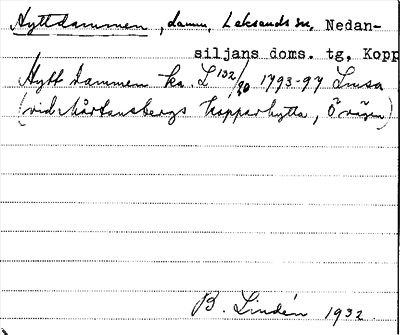 Hyttdammen, damm, Leksands sn, Nedan-
siljans doms. tg, Kopp
Hytt Dammen ka. L 132/20 1793-97 Lmsa
(vid Mårtansbergs kopparhytta, Övisen)
B. Lindén 1932